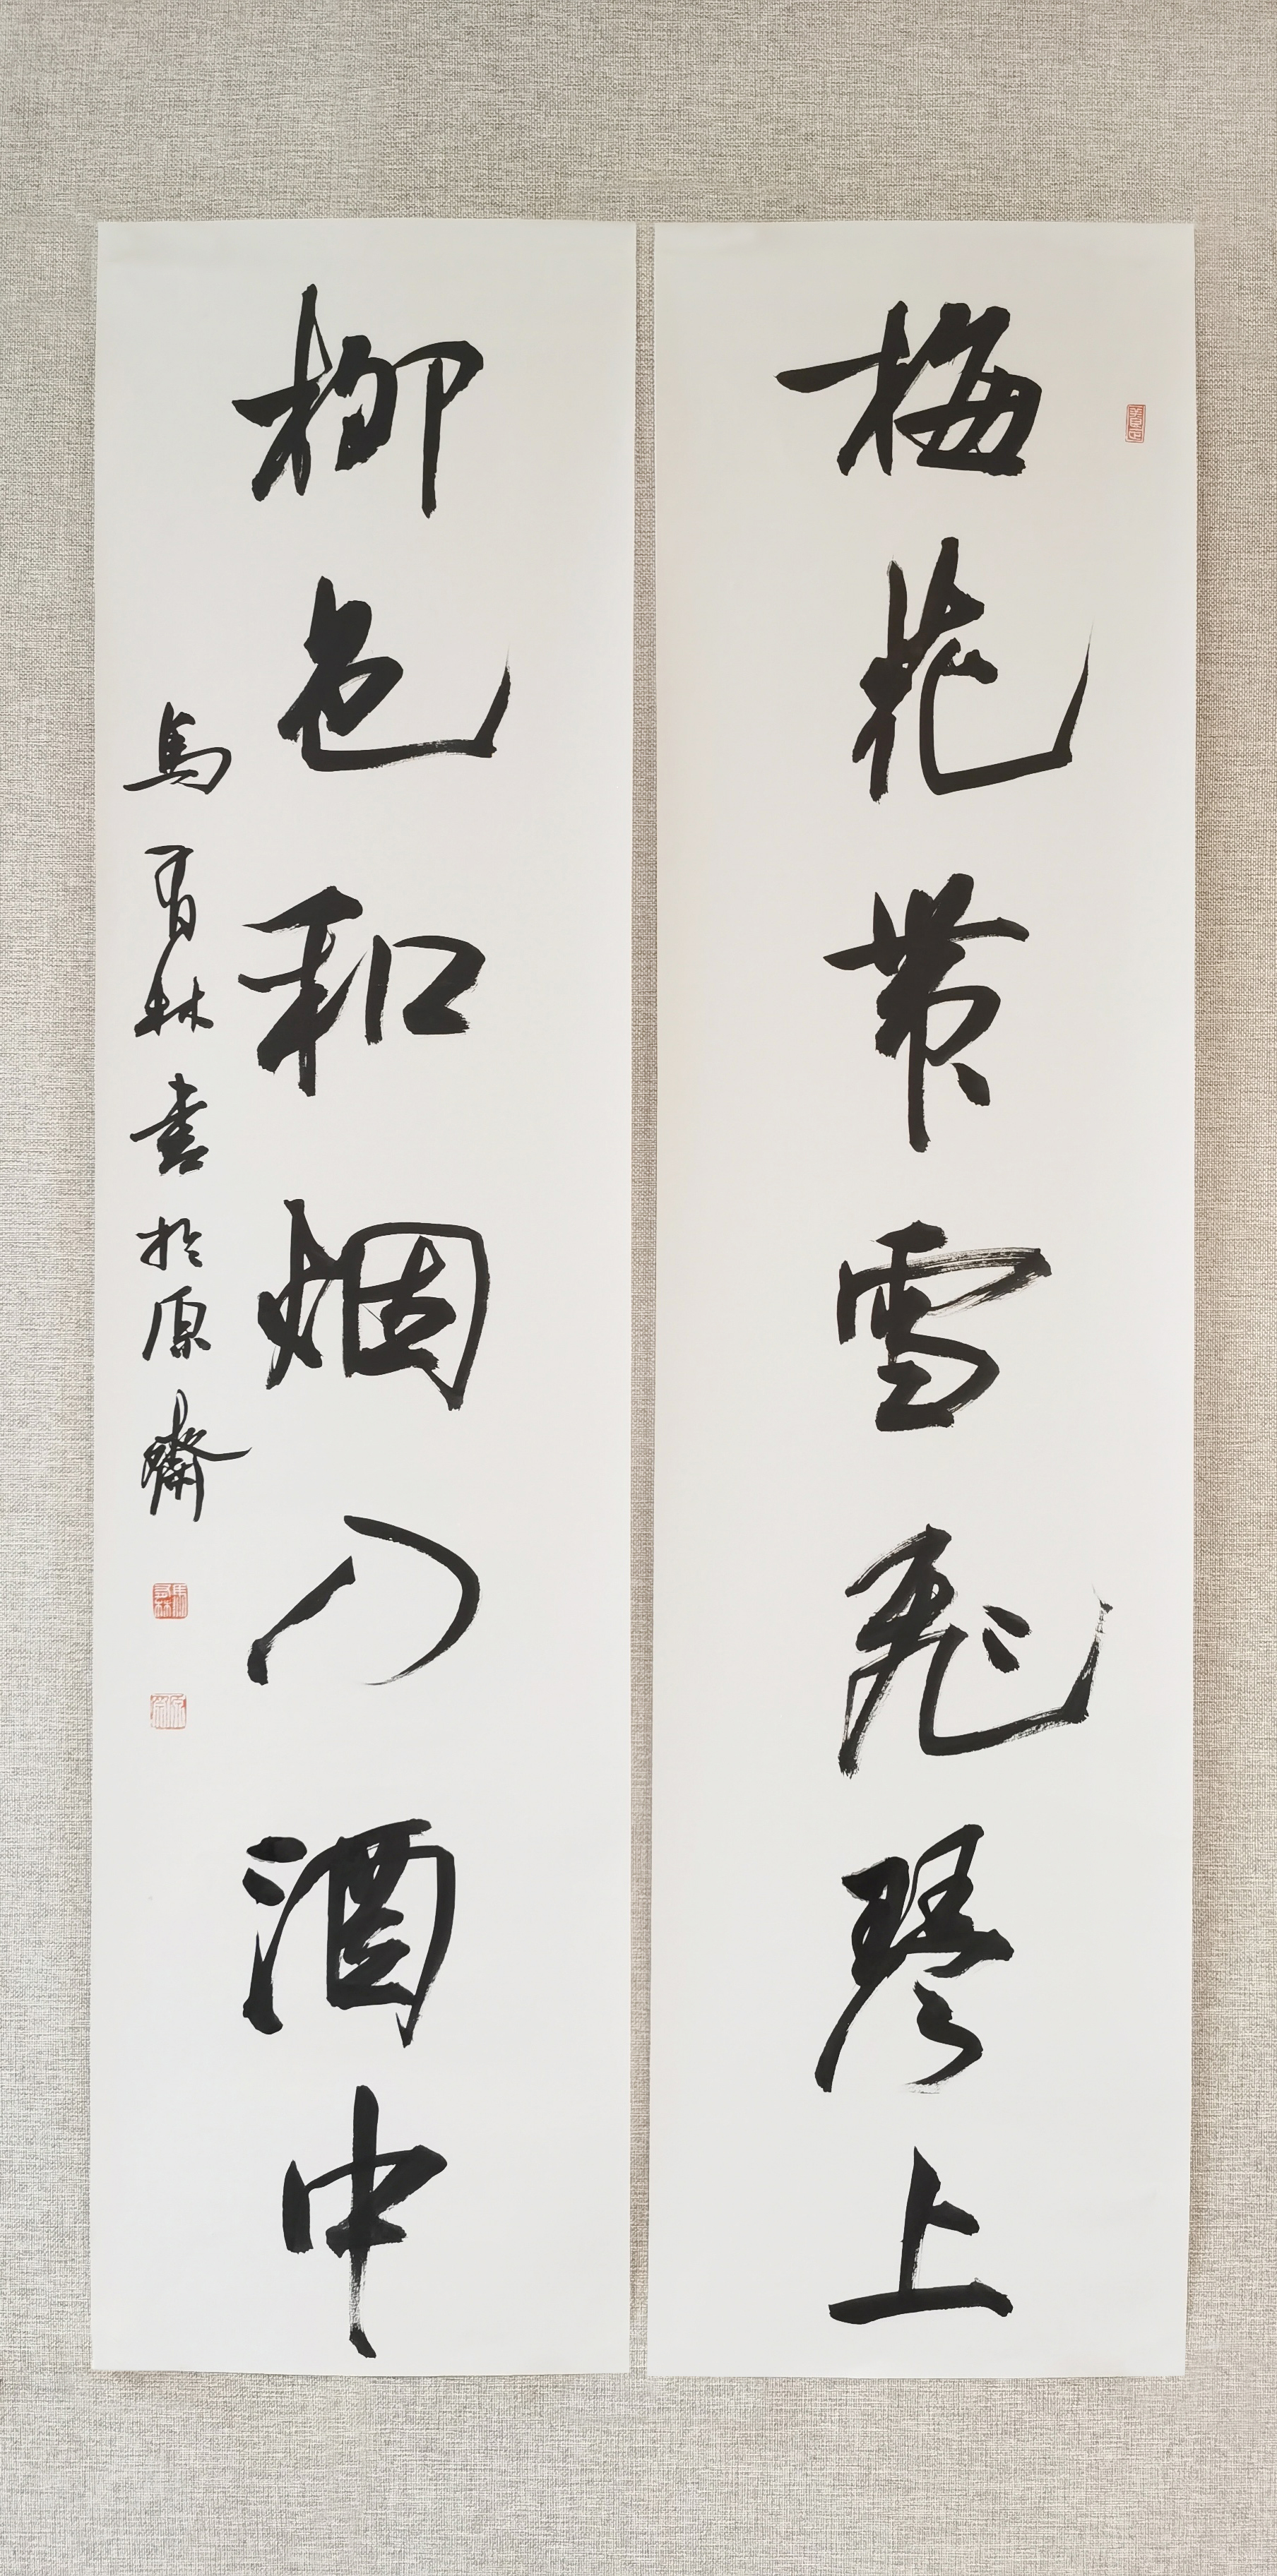 梅花带雪飛琴上
柳色和烟入酒中
馬有林书於原齋